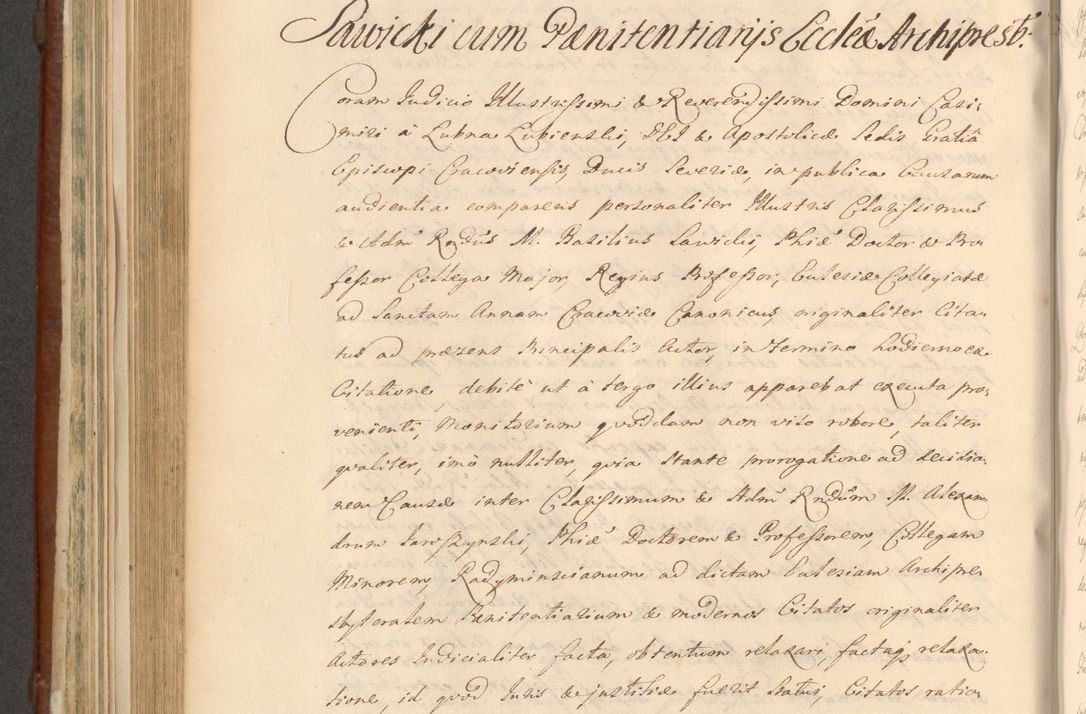 Sawicki cum Pœnitentiarijs Eccleæ Archipresb:
Coram Judicio Illustrissimi & Reverendissimi Domini Casi-
miri à Lubna Łubienski, DEI & Apostolicæ Sedis Gratiâ
Episcopi Cracoviensis, Ducis Severiæ, in publica Causarum
audientia comparens personaliter Illustris Clarissimus
& Adm Rndus M. Basilius Sawicki, Phiæ Doctor & Pro-
fessor Collega Major, Regius Professor, Ecclesiæ Collegiatæ
ad Sanctam Annam Cracoviæ Canonicus, originaliter Cita-
tus ad præsens Principalis Actor, in termino hodierno ex
Citatione, debitè ut à tergo illius apparebat executa pro-
venienti, Monitorium quoddam non viso robore, taliter
qualiter, imò nulliter, quia stante prorogatione ad decisio-
nem Causæ inter Clarissimum & Adm Rndum M. Alexan-
drum Jaroszynski, Phiæ Doctorem & Professorem, Collegam
Minorem, Radyminscianum ad dictam Ecclesiam Archipre-
sbyteralem Pænitentiarium & modernos Citatos originaliter
Actores Judicialiter facta, obtentum relaxari, factaq relaxa-
tione, id quod Juris & justitiæ fuerit statui, Citatos ratio-